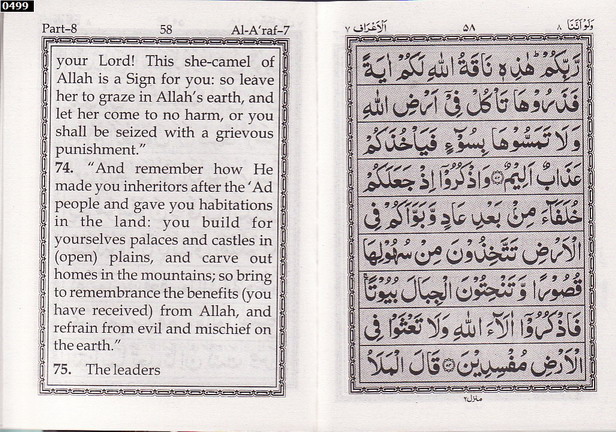 0499
Part–8 58 Al-A'raf–7
your Lord! This she-camel of
Allah is a Sign for you: so leave
her to graze in Allah's earth, and
let her come to no harm, or you
shall be seized with a grievous
punishment.”
74. “And remember how He
made you inheritors after the ‘Ad
people and gave you habitations
in the land: you build for
yourselves palaces and castles in
(open) plains, and carve out
homes in the mountains; so bring
to remembrance the benefits (you
have received) from Allah, and
refrain from evil and mischief on
the earth.”
75. The leaders
وَلَوْ اَنَّنَا ٨ ٥٨ اَلْاَعْرَاف ٧
رَّبِّكُمْ هٰذِهٖ نَاقَةُ اللّٰهِ لَكُمْ اٰيَةً
فَذَرُوْهَا تَاْكُلْ فِيْۤ اَرْضِ اللّٰهِ
وَلَا تَمَسُّوْهَا بِسُوْٓءٍ فَيَاْخُذَكُمْ
عَذَابٌ اَلِيْمٌ ۝ وَاذْكُرُوْۤا اِذْ جَعَلَكُمْ
خُلَفَآءَ مِنْۢ بَعْدِ عَادٍ وَّبَوَّاَكُمْ فِي
الْاَرْضِ تَتَّخِذُوْنَ مِنْ سُهُوْلِهَا
قُصُوْرًا وَّتَنْحِتُوْنَ الْجِبَالَ بُيُوْتًا ۚ
فَاذْكُرُوْۤا اٰلَآءَ اللّٰهِ وَلَا تَعْثَوْا فِي
الْاَرْضِ مُفْسِدِيْنَ ۝ قَالَ الْمَلَاُ
منزل٢